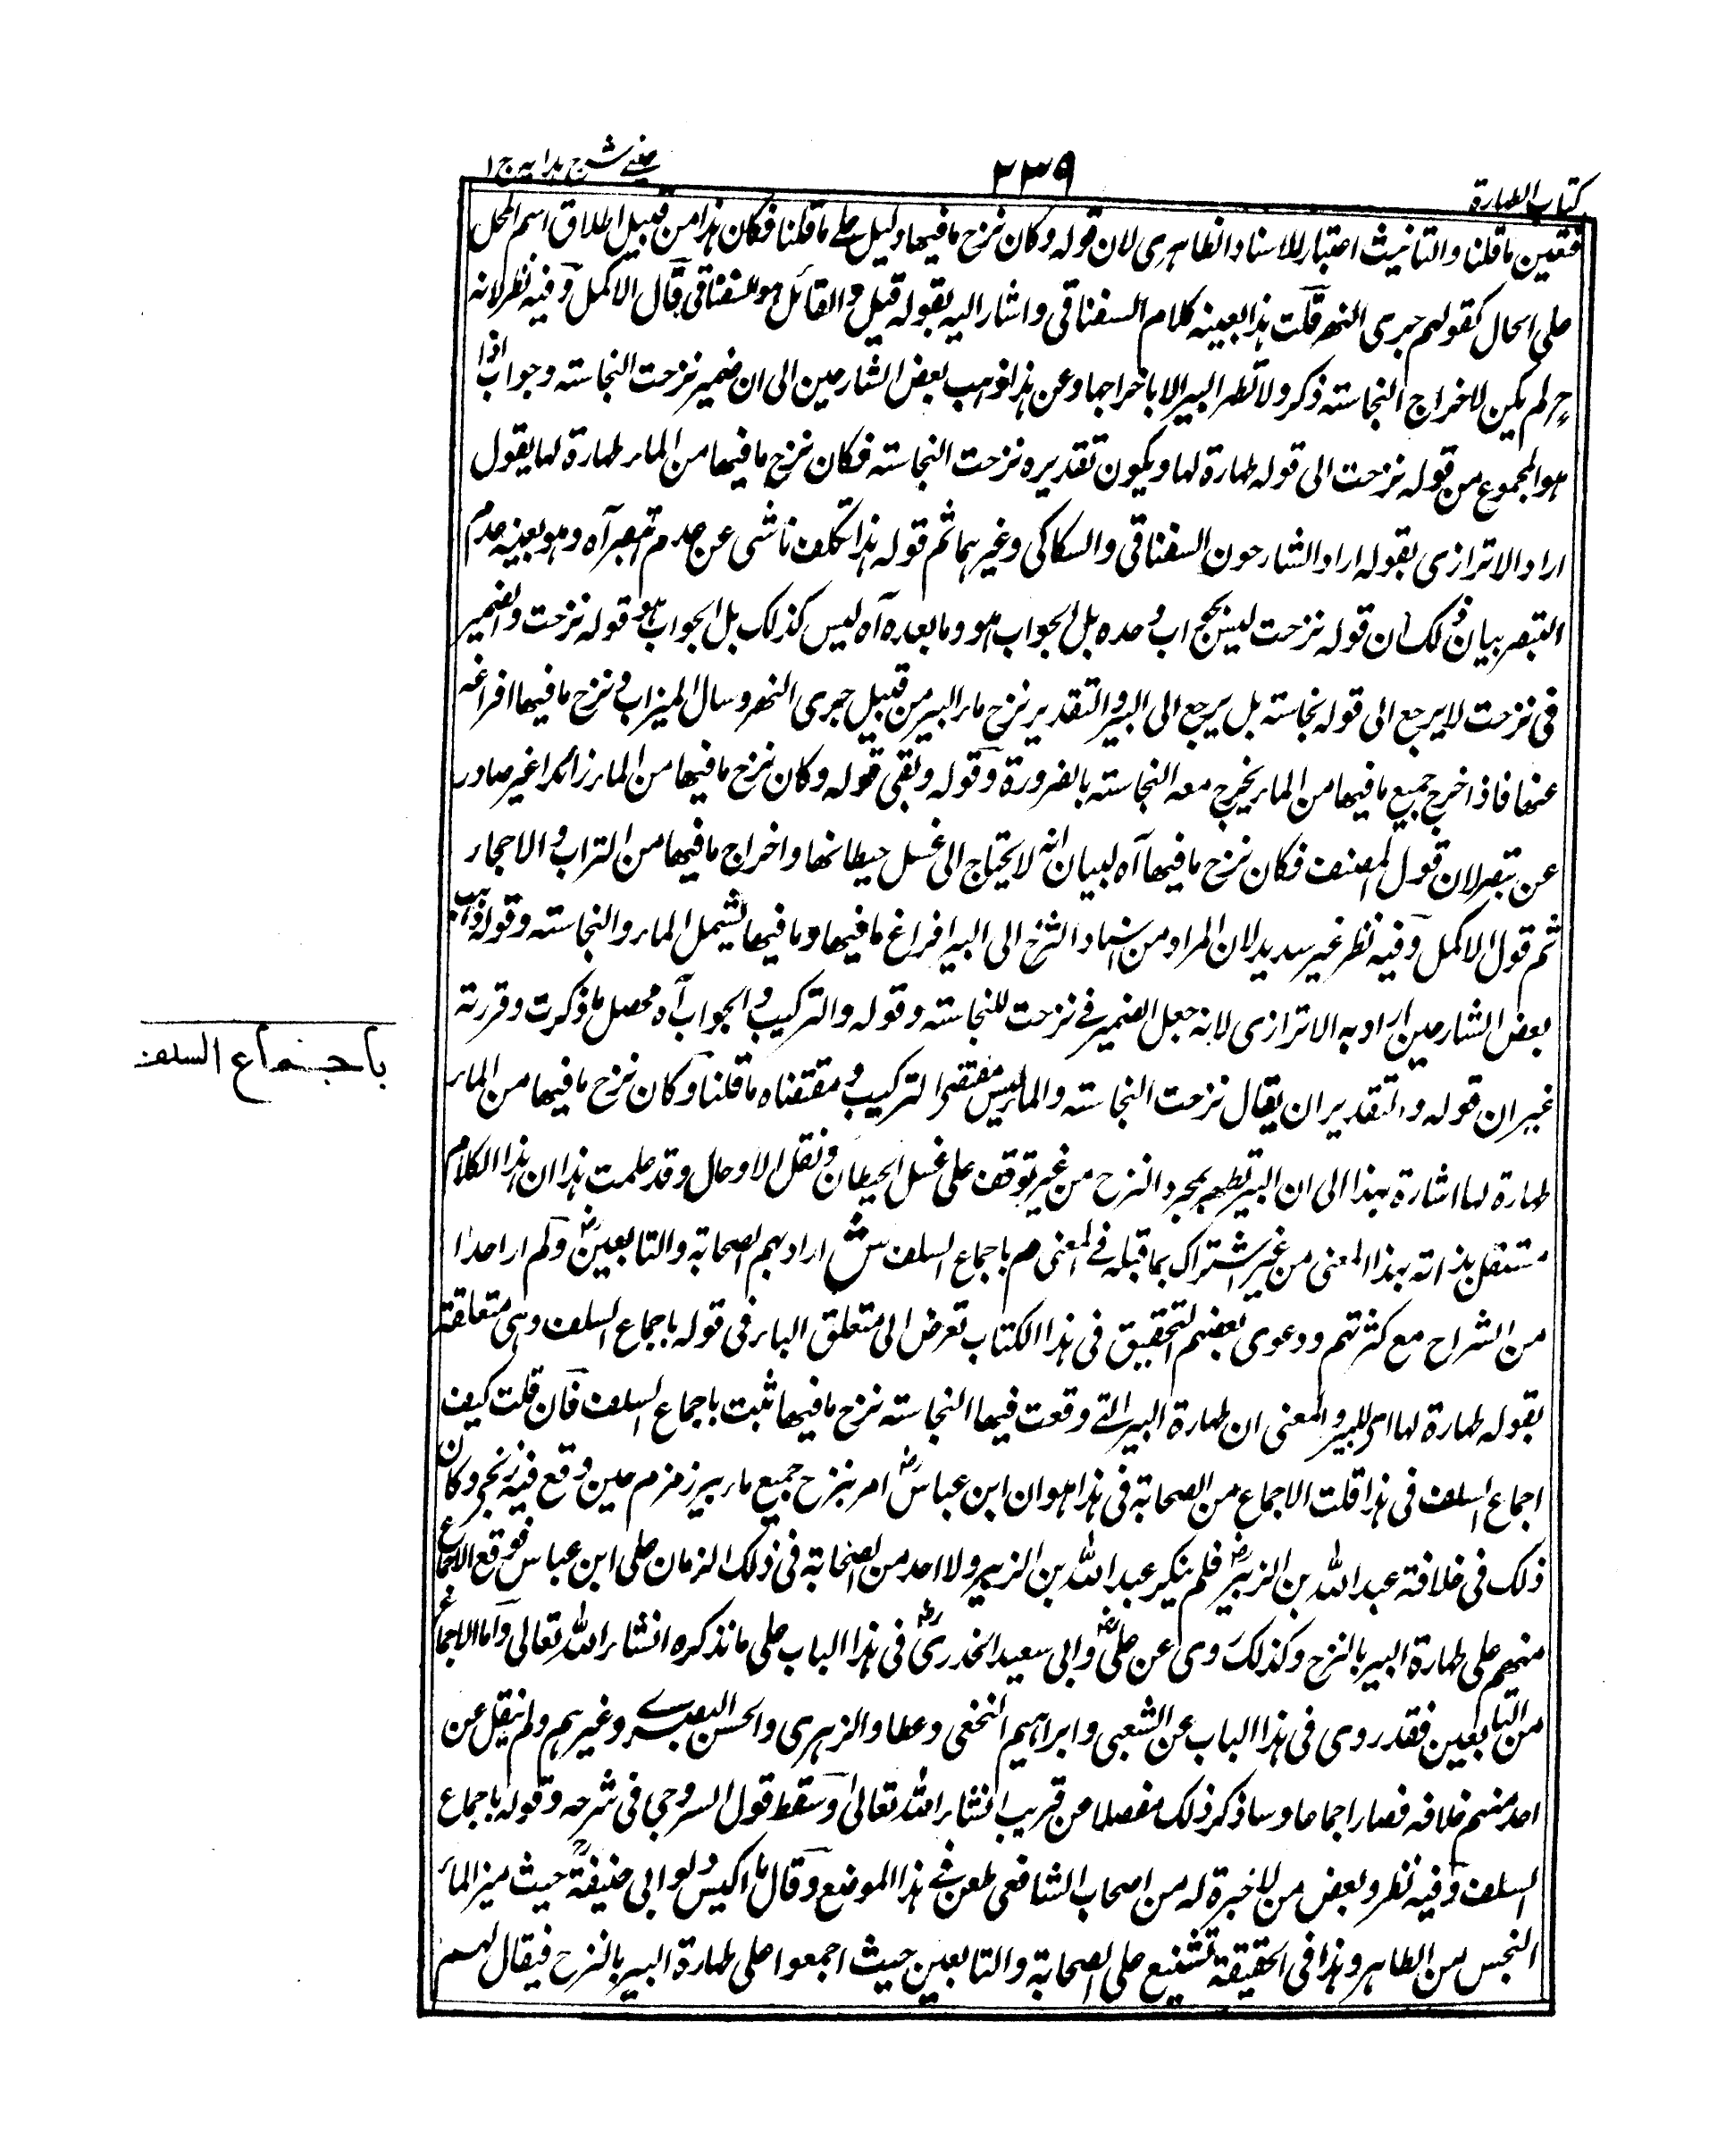 كتاب الطهارة
٢٣٩
عينى شرح هدايه ج ١
فتعين ما قلنا والتانيث اعتبار للاسناد الظاهرى لان قوله وكان نزح ما فيها دليل على ما قلنا فكان هذا من قبيل اطلاق اسم المحل
على الحال كقولهم جرى النهر قلت هذا بعينه كلام السغناقى واشار اليه بقوله قيل والقائل هو السغناقى قال الاكمل وفيه نظر لانه
ح لم يكن لاخراج النجاسته ذكر ولا تطهر البير الا باخراجها وعن هذا ذهب بعض الشارحين الى ان ضمير نزحت النجاسته وجواب اذا
هو المجموع من قوله نزحت الى قوله طهارة لها ويكون تقديره نزحت النجاسته فكان نزح ما فيها من الماء طهارة لها يقول
اراد الاترازى بقوله اراد الشارحون السغناقى والسكاكى وغيرهما ثم قوله هذا تكلف ناشى عن عدم تبصر آه وهو بعينه عدم
التبصر بيان ذلك ان قوله نزحت ليس بجواب وحده بل الجواب هو وما بعده آه ليس كذلك بل الجواب هو قوله نزحت والضمير
فى نزحت لا يرجع الى قوله نجاسته بل يرجع الى البير والتقدير نزح ماء البير من قبيل جرى النهر وسال الميزاب ونزح ما فيها افراغه
عنها فاذا خرج جميع ما فيها من الماء يخرج معه النجاسته بالضرورة وقوله وبقى قوله وكان نزح ما فيها من الماء زائدا غير صادر
عن تبصر لان قول المصنف فكان نزح ما فيها آه لبيان انه لا يحتاج الى غسل حيطانها واخراج ما فيها من التراب والاحجار
ثم قول الاكمل وفيه نظر غير سديد لان المراد من اسناد النزح الى البير افراغ ما فيها وما فيها يشمل الماء والنجاسته وقوله ذهب
بعض الشارحين اراد به الاترازى لانه جعل الضمير فى نزحت للنجاسته وقوله والتركيب والجواب آه محصل ما ذكرت وقررته
غير ان قوله والتقدير ان يقال نزحت النجاسته والماء ليس مقتضى التركيب ومقتضاه ما قلنا وكان نزح ما فيها من الماء
طهارة لها اشارة بهذا الى ان البير تطهر بمجرد النزح من غير توقف على غسل الحيطان ونقل الاوحال وقد علمت هذا ان هذا الكلام
مستقل بذاته بهذا المعنى من غير اشتراك بما قبله فى المعنى م باجماع السلف ش اراد بهم الصحابة والتابعين رض ولم ار احدا
من الشراح مع كثرتهم ودعوى بعضهم التحقيق فى هذا الكتاب تعرض الى متعلق الباء فى قوله باجماع السلف وهى متعلقة
بقوله طهارة لها اى للبير والمعنى ان طهارة البير التى وقعت فيها النجاسته نزح ما فيها ثبت باجماع السلف فان قلت كيف
اجماع السلف فى هذا قلت الاجماع من الصحابة فى هذا هو ان ابن عباس رض امر بنزح جميع ماء بير زمزم حين وقع فيه زنجى وكان
ذلك فى خلافة عبد الله بن الزبير رض فلم ينكر عبد الله بن الزبير ولا احد من الصحابة فى ذلك الزمان على ابن عباس فوقع الاجماع
منهم على طهارة البير بالنزح وكذلك روى عن على رض وابى سعيد الخدرى رض فى هذا الباب على ما نذكره انشاء الله تعالى واما الاجماع
من التابعين فقد روى فى هذا الباب عن الشعبى وابراهيم النخعى وعطا والزهرى والحسن البصرى وغيرهم ولم ينقل عن
احد منهم خلافه فصار اجماعا وساذكر ذلك مفصلا من قريب انشاء الله تعالى وسقط قول السروجى فى شرحه وقوله باجماع
السلف وفيه نظر وبعض من لا خبرة له من اصحاب الشافعى طعن فى هذا الموضع وقال ما اكيس دلو ابى حنيفة رح حيث ميز الماء
النجس من الطاهر وهذا فى الحقيقة تشنيع على الصحابة والتابعين حيث اجمعوا على طهارة البير بالنزح فيقال لهم
باجماع السلف